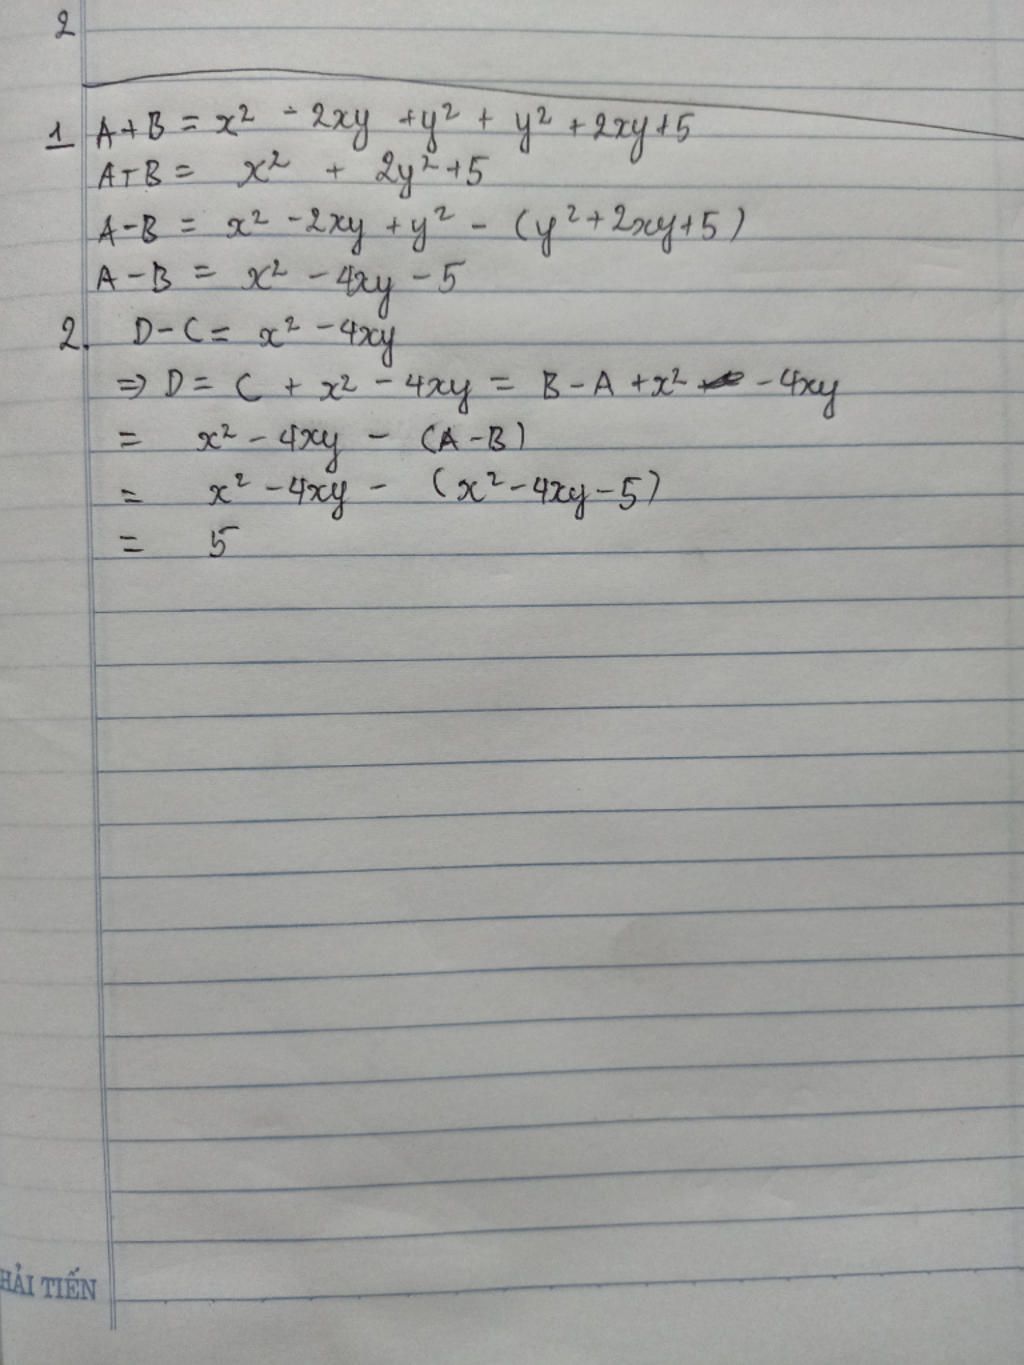 2
1 A+B = x² - 2xy + y² + y² + 2xy + 5
A+B = x² + 2y² + 5
A-B = x² - 2xy + y² - (y² + 2xy + 5)
A-B = x² - 4xy - 5
2. D-C = x² - 4xy
=> D = C + x² - 4xy = B - A + x² - 4xy
= x² - 4xy - (A-B)
= x² - 4xy - (x² - 4xy - 5)
= 5
HẢI TIẾN